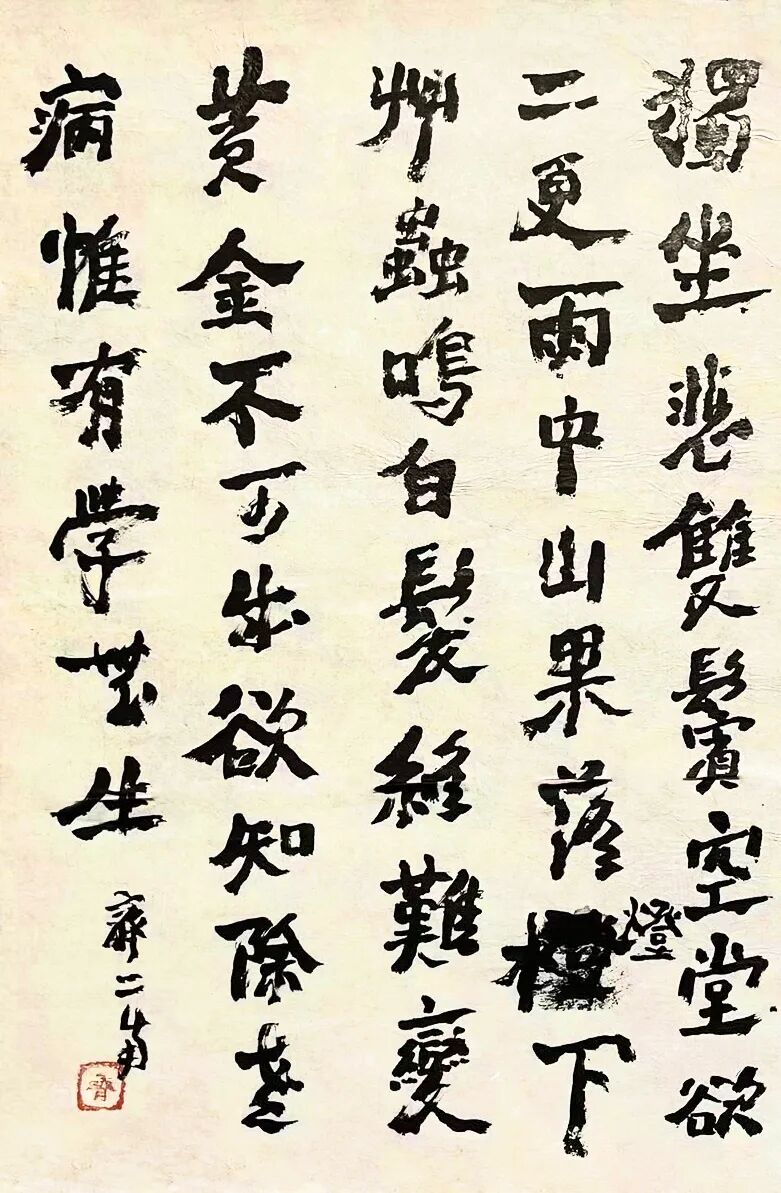 獨坐悲雙鬢空堂欲
二更雨中山果落燈下
艸蟲鳴白髮終難變
黃金不可成欲知除老
病惟有學無生
齊二